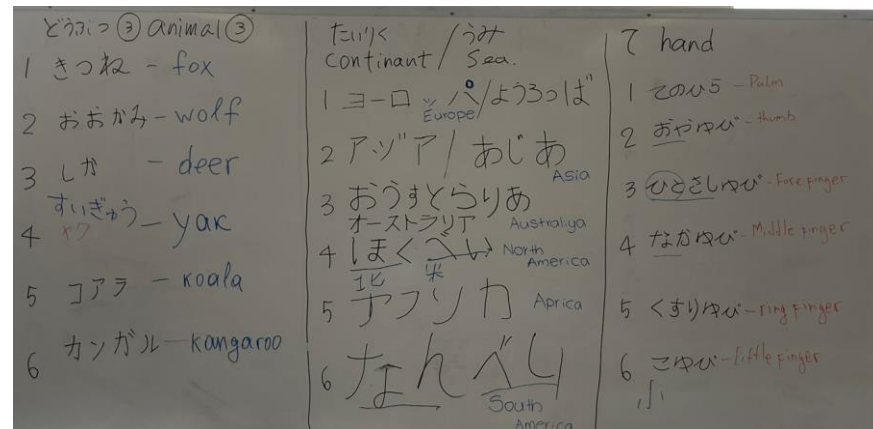 どうぶつ ③ animal ③
1 きつね - fox
2 おおかみ - wolf
3 しか - deer
4 すいぎゅう - yak
ヤク
5 コアラ - koala
6 カンガルー - kangaroo
たいりく / うみ
continant / Sea.
1 ヨーロッパ / ようろっぱ
Europe
2 アヅア / あじあ
Asia
3 おうすとらりあ
オーストラリア Australiya
4 しほくべい North
北 米 America
5 アフリカ Aprica
6 なんべい
South
America
て hand
1 てのひら - Palm
2 おやゆび - thumb
3 ひとさしゆび - Fore pinger
4 なかゆび - Middle pinger
5 くすりゆび - ring pinger
6 こゆび - little pinger
小